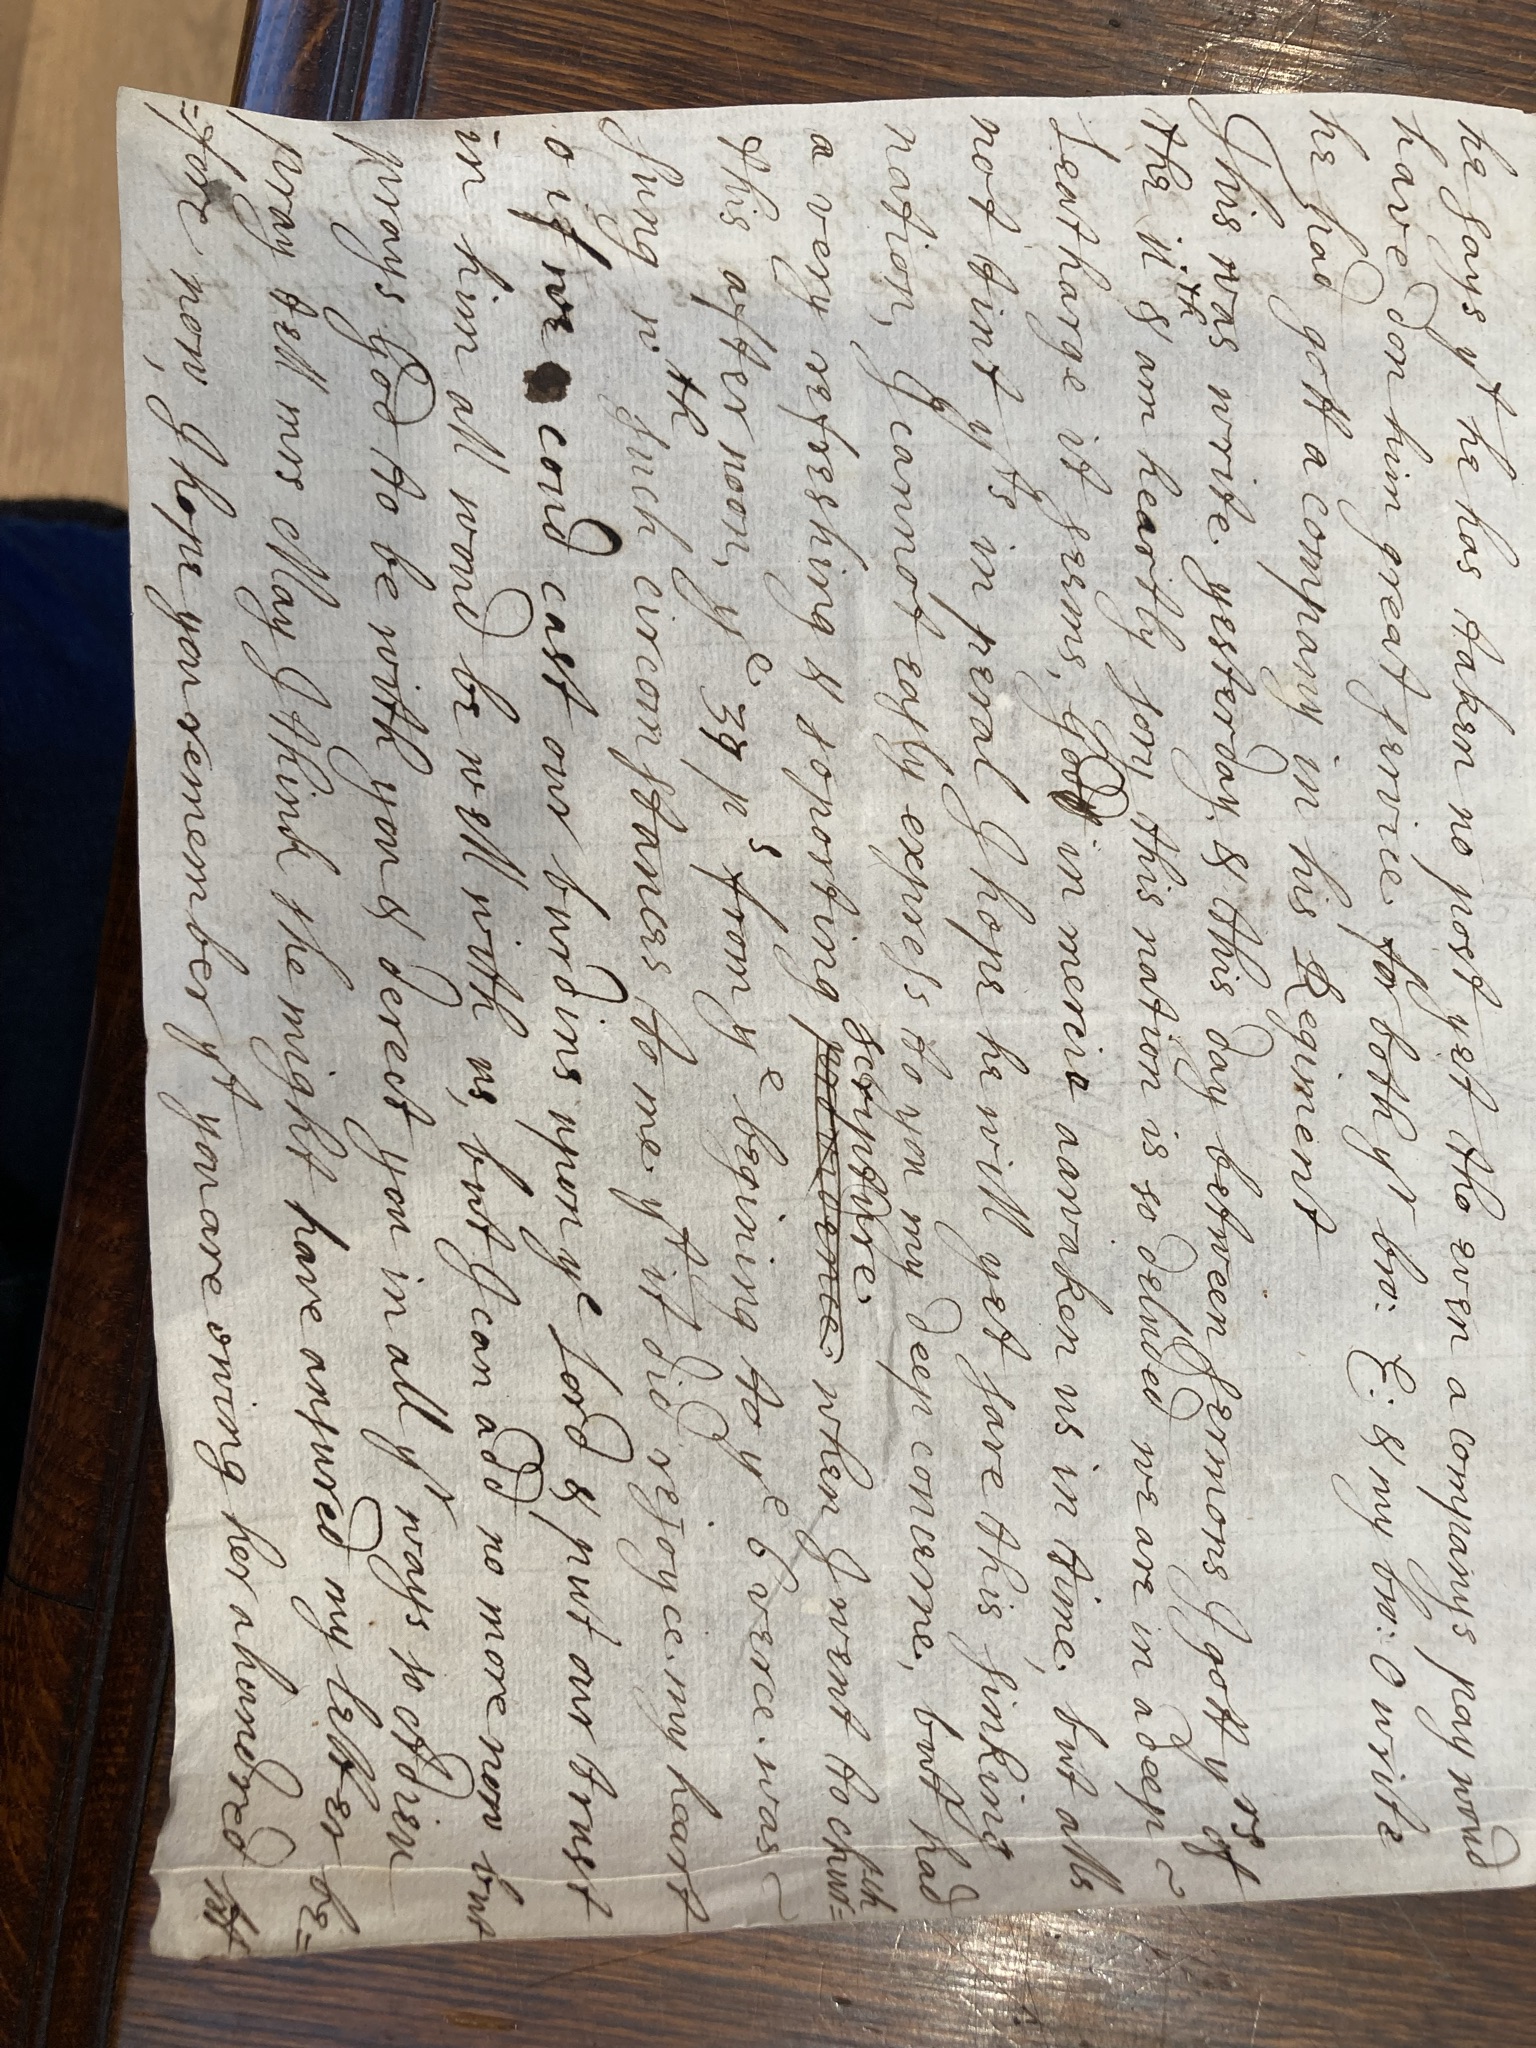 he says yt he has taken no post yet tho even a companys pay woud
have don him great service for both yr bro: E: & my bro: O write
he had gott a company in his Regiment
This was write yesterday, & this day between sermons I gott yrs of
the 11th & am heartly sory this nation is so deluded we are in a deep ~
Leatharge it seems, God in mercie aawaken us in time, but alls
not tint yts in peral I hope he will yet save this sinking
nation, I cannot easly express to you my deep concerne, but had
a very refreshing & soporting scripture providence when I went to chur=ch
this after noon, ye 37 ps from ye begining to ye 6 verce was ~
sung wth such circomstances to me yt it did rejoyce my heart
o if we coud cast our burdins upon ye Lord & put our trust
in him all woud be well with us, but I can add no more now but
prays God to be with you & derect you in all yr ways so Adieu
pray tell mrs May I think she might have ansured my letter be=
=fore now, I hope you remember yt you are owing her a hundred